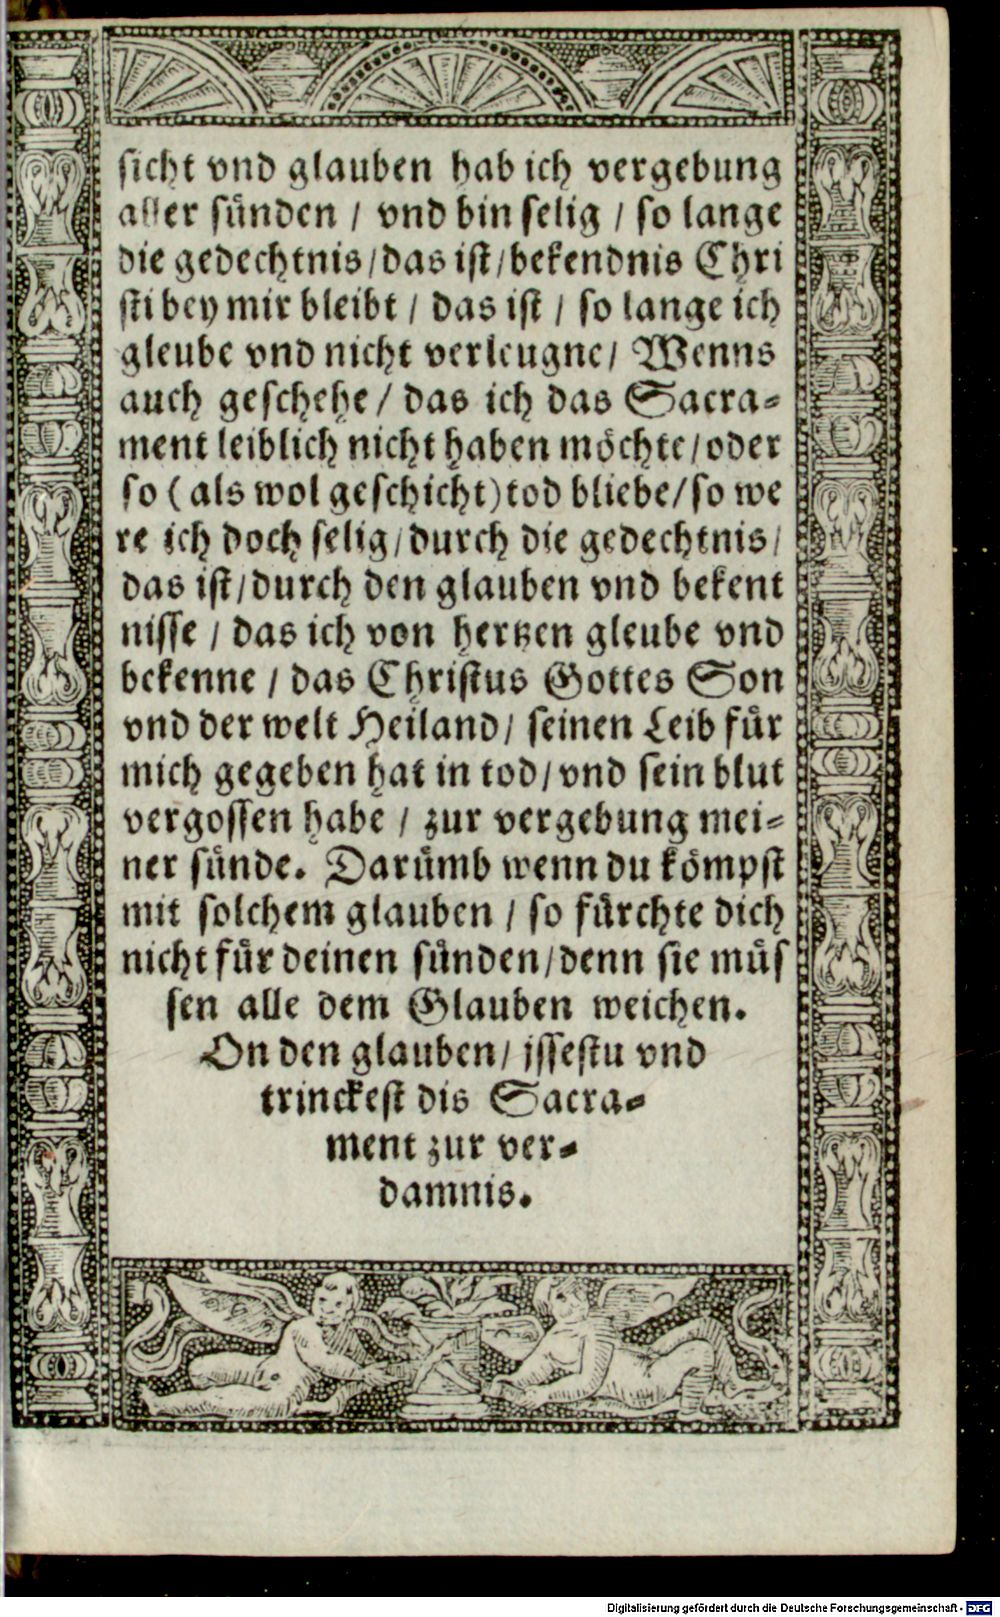 sicht vnd glauben hab ich vergebung
aller sünden / vnd bin selig / so lange
die gedechtnis / das ist / bekendnis Chri
sti bey mir bleibt / das ist / so lange ich
gleube vnd nicht verleugne / Wenns
auch geschehe / das ich das Sacra-
ment leiblich nicht haben möchte / oder
so (als wol geschicht) tod bliebe / so we
re ich doch selig / durch die gedechtnis /
das ist / durch den glauben vnd bekent
nisse / das ich von hertzen gleube vnd
bekenne / das Christus Gottes Son
vnd der welt Heiland / seinen Leib für
mich gegeben hat in tod / vnd sein blut
vergossen habe / zur vergebung mei-
ner sünde. Darümb wenn du kömpst
mit solchem glauben / so fürchte dich
nicht für deinen sünden / denn sie müs
sen alle dem Glauben weichen.
On den glauben / issestu vnd
trinckest dis Sacra-
ment zur ver-
damnis.
Digitalisierung gefördert durch die Deutsche Forschungsgemeinschaft - DFG